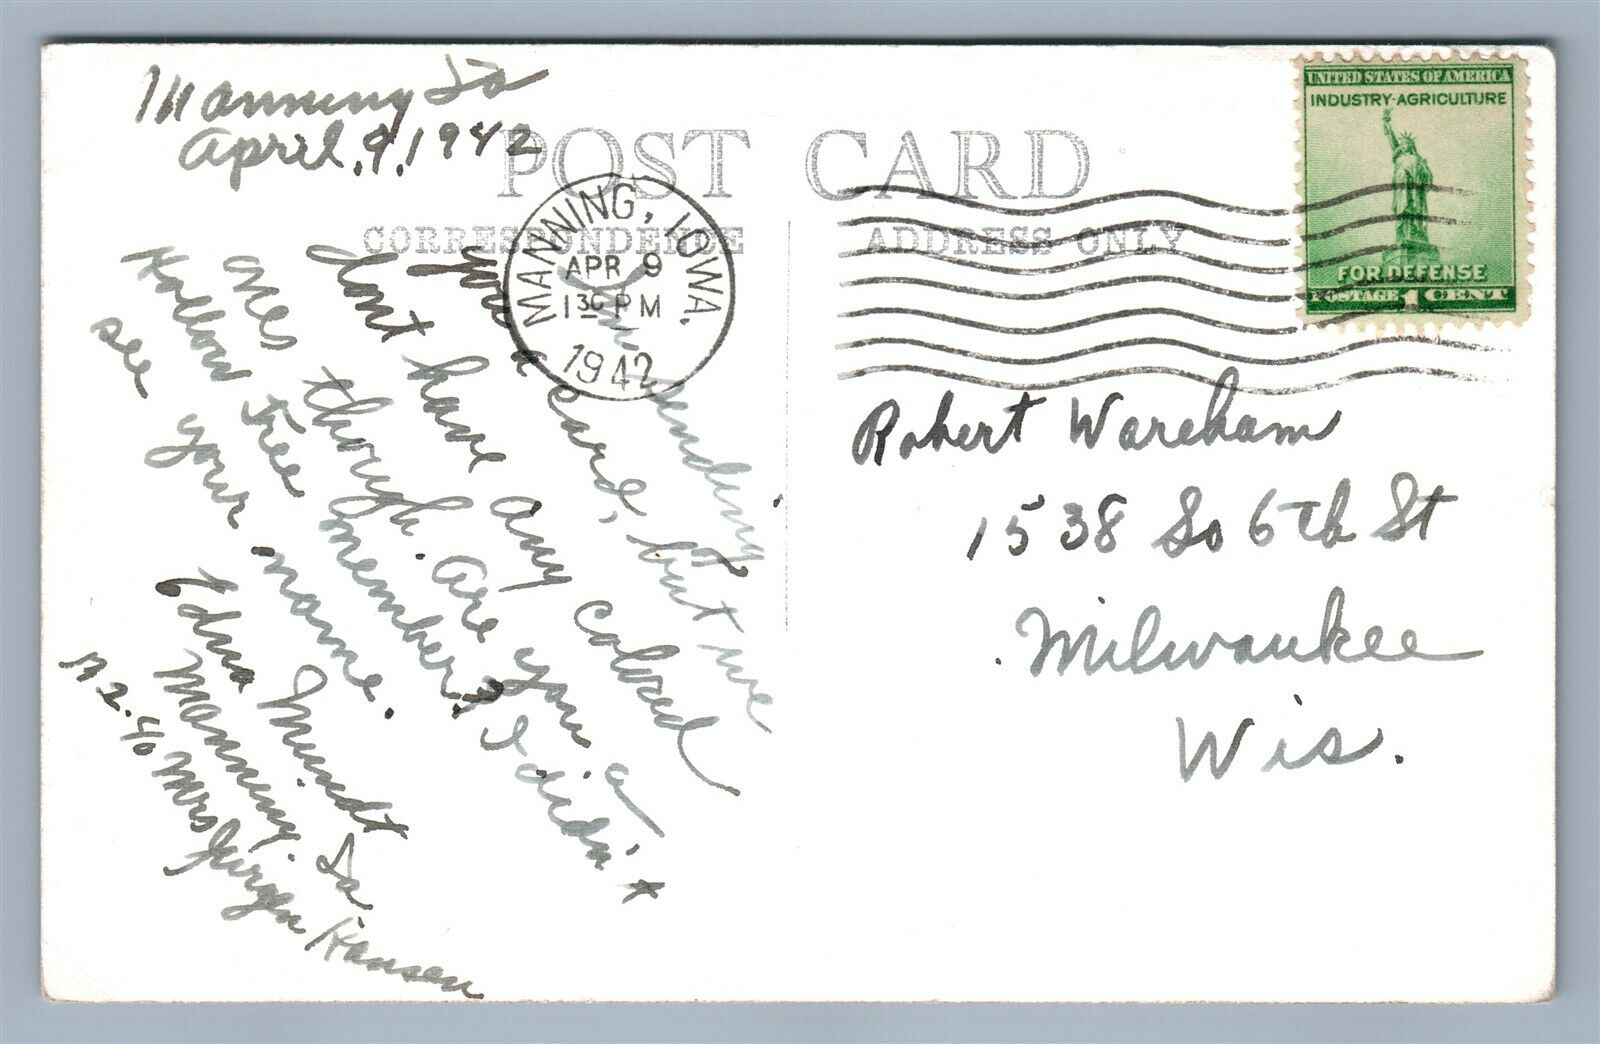 Manning Ia
April.9.1942
POST CARD
CORRESPONDENCE
ADDRESS ONLY
MANNING, IOWA.
APR 9
1 30 PM
1942
UNITED STATES OF AMERICA
INDUSTRY-AGRICULTURE
FOR DEFENSE
POSTAGE 1 CENT
I'm sending
you a card, but we
dont have any colored
ones though. are you a
Hollow Tree member? I didn't
see your name.
Edna Mundt
Manning. Ia
R 2. % Mrs Jurgen Hansen
Robert Wareham
1538 So 6th St
Milwaukee
Wis.